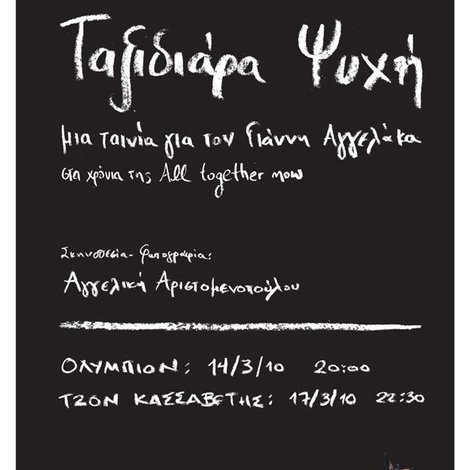 Ταξιδιάρα Ψυχή
μια ταινία για τον Γιάννη Αγγελάκα
στα χρόνια της All together now
Σκηνοθεσία-φωτογραφία:
Αγγελική Αριστομενοπούλου
ΟΛΥΜΠΙΟΝ: 14/3/10 20:00
ΤΖΟΝ ΚΑΣΣΑΒΕΤΗΣ: 17/3/10 22:30